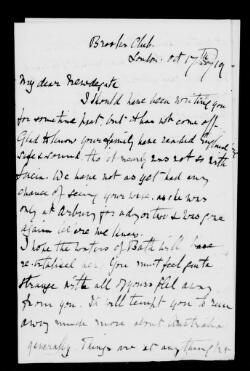 Brooks's Club.
London. Oct 17th 1919
My dear Newdegate
I should have been writing you
for some time past, but it has not come off.
Glad to know your family have reached England
safe & sound tho' it nearly was not so with
them. We have not as yet had any
chance of seeing your wife, as she was
only at Arbury for a day or two & was gone
again before we knew.
I hope the waters of Bath will have
re-vitalised her. You must feel quite
strange with all of yours full away
from you. It will tempt you to run
away much more about Australia
generally. Things are at any time